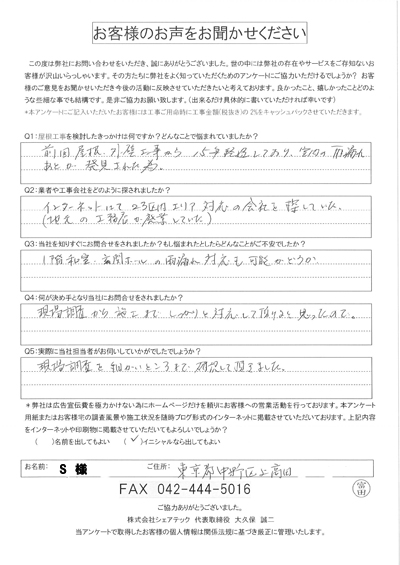 お客様のお声をお聞かせください
この度は弊社にお問い合わせをいただき、誠にありがとうございました。世の中には弊社の存在やサービスをご存知ないお
客様が沢山いらっしゃいます。その方たちに弊社をよく知っていただくためのアンケートにご協力いただけるでしょうか? お客
様のご意見をお聞かせいただき今後の活動に反映させていただきたいと考えております。良かったこと、嬉しかったことどのよ
うな些細な事でも結構です。是非ご協力お願い致します。(出来るだけ具体的に書いていただければ幸いです)
*本アンケートにご記入いただいたお客様には工事ご用命時に工事金額(税抜き)の2%をキャッシュバックさせていただきます。
Q1:屋根工事を検討したきっかけは何ですか?どんなことで悩まれていましたか?
前回屋根、外壁工事から15年経過しており、室内の雨漏れ
あとが発見された為。
Q2:業者や工事会社をどのように探されましたか?
インターネットにて23区内エリア対応の会社を探していた。
(地元の工務店が廃業していた)
Q3:当社を知りすぐにお問合せをされましたか?もし悩まれたとしたらどんなことがご不安でしたか?
1階和室、玄関ホールの雨漏れ対応も可能かどうか
Q4:何が決め手となり当社にお問合せをされましたか?
現場調査から施工までしっかりと対応して頂けると思ったので。
Q5:実際に当社担当者がお伺いしていかがでしたでしょうか?
現場調査を細かいところまで確認して頂きました。
*弊社は広告宣伝費を極力かけない為にホームページだけを頼りにお客様への営業活動を行っております。本アンケート
用紙またはお客様宅の調査風景や施工状況を随時ブログ形式のインターネットに掲載させていただいております。上記内容
をインターネットや印刷物に掲載させていただいてもよろしいでしょうか?
( )名前を出してもよい (✓)イニシャルなら出してもよい
お名前: S 様 ご住所: 東京都中野区上高田
FAX 042-444-5016
富田
ご協力ありがとうございました。
株式会社シェアテック 代表取締役 大久保 誠二
当アンケートで取得したお客様の個人情報は関係法規に基づき厳正に管理いたします。